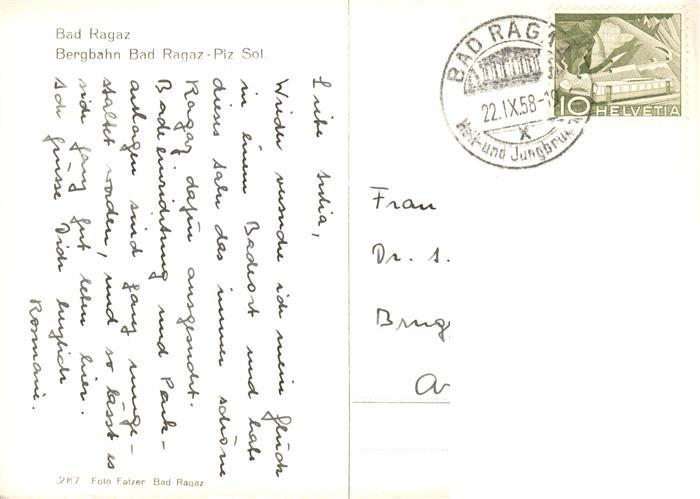 Bad Ragaz
Bergbahn Bad Ragaz-Piz Sol.
Liebe
Wieder versuche ich mein Glück
in einem Badeort und habe
dieses Jahr das immer schöne
Ragaz dafür ausgesucht.
Badeeinrichtung und Park-
anlagen sind ganz umge-
staltet worden, und so lässt es
sich ganz gut leben hier.
Ich grüsse Dich herzlich
Rosmarie.
287 Foto Fetzer Bad Ragaz
BAD RAGAZ
22.IX.58-18
X
Heil-und Jungbru
10 HELVETIA
Frau
Dr. S.
Brugg